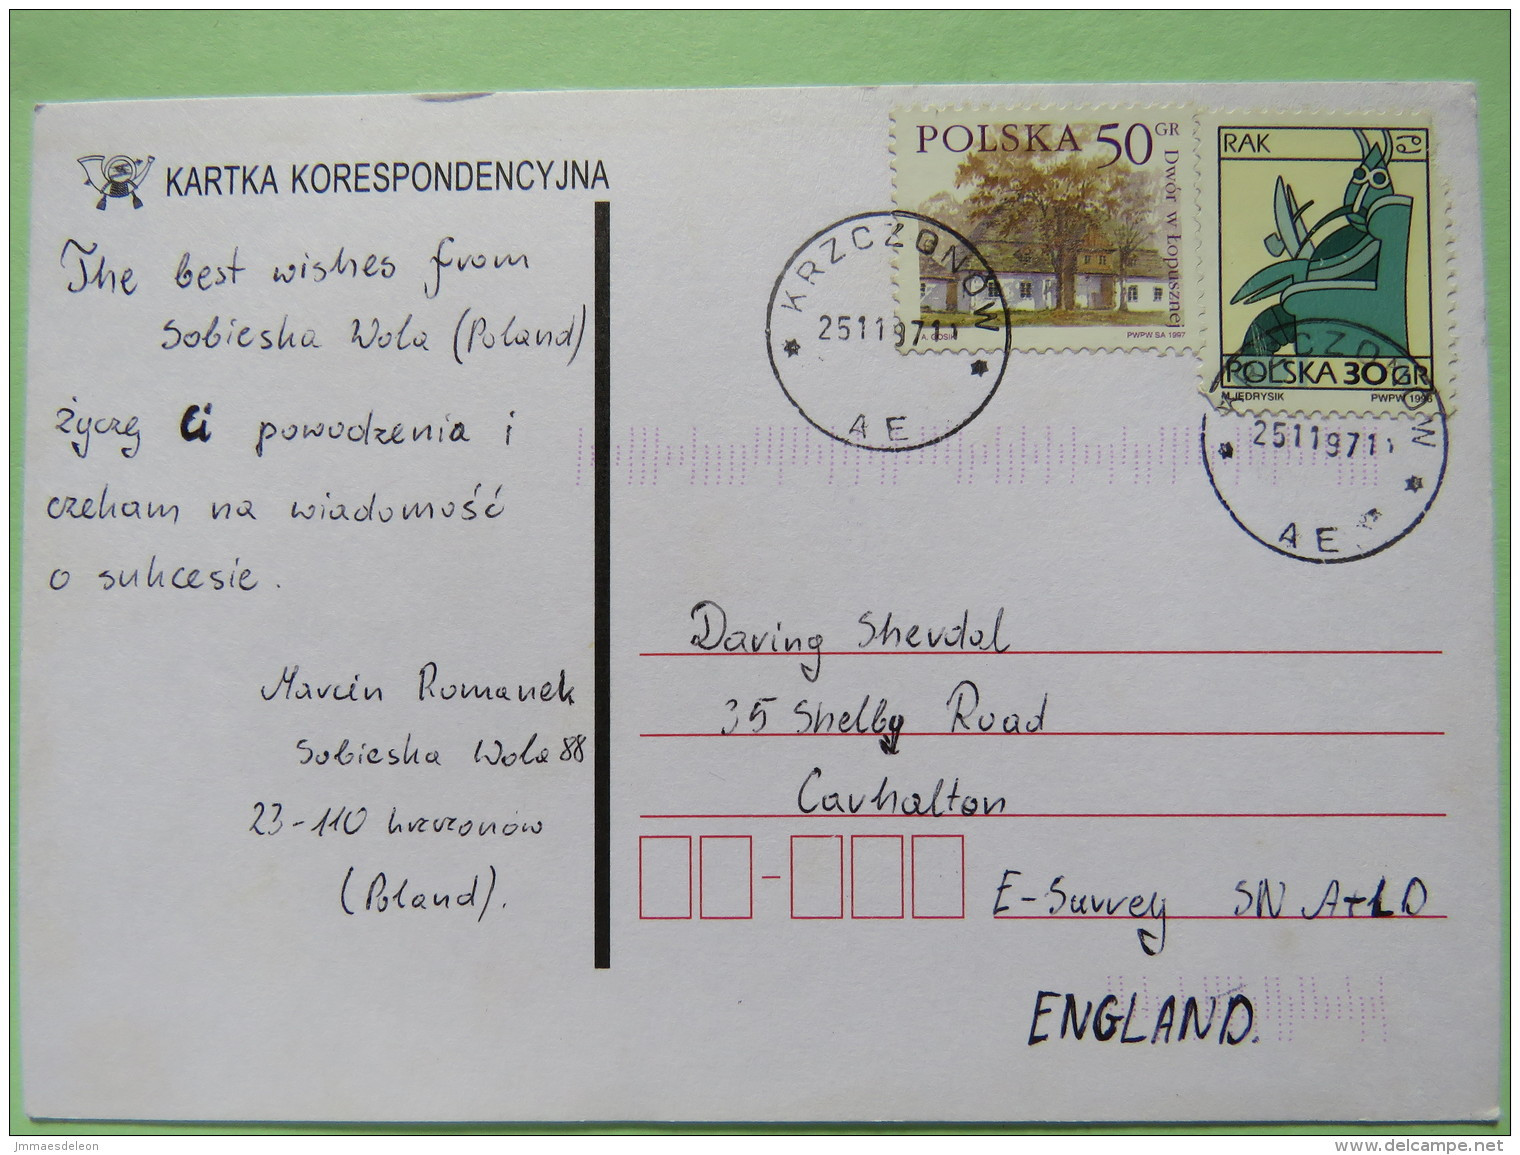 KARTKA KORESPONDENCYJNA
The best wishes from
Sobieska Wola (Poland)
życzę Ci powodzenia i
czekam na wiadomość
o sukcesie.
Marcin Romanek
Sobieska Wola 88
23-110 Krzczonów
(Poland).
POLSKA 50 GR
Dwór w Łopusznej
A. GOSIK
PWPW SA 1997
RAK
POLSKA 30 GR
M. JEDRYSIK
PWPW 1996
KRZCZONÓW
25 11 97 11
A E
KRZCZONÓW
25 11 97 11
A E
Daving Shevdal
35 Shelby Road
Carhalton
E-Surrey SN
ENGLAND.
jmmaesdeleon
www.delcampe.net